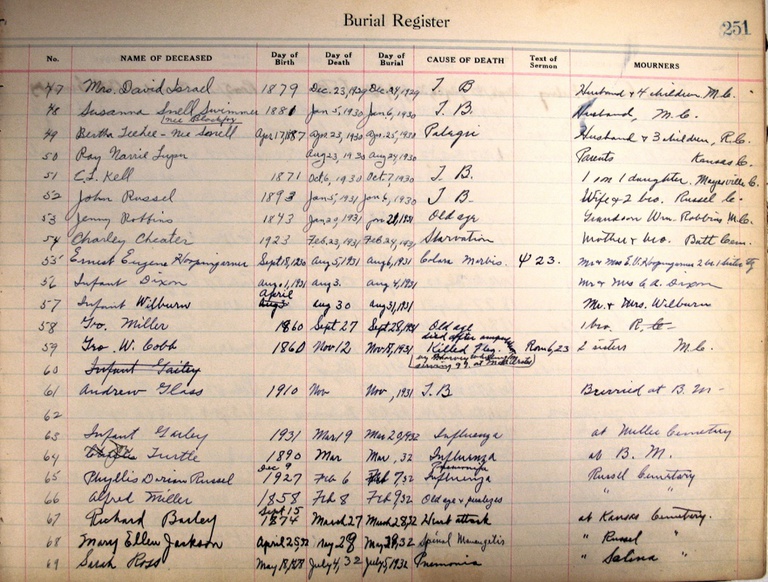 Burial Register
251
No. NAME OF DECEASED Day of Birth Day of Death Day of Burial CAUSE OF DEATH Text of Sermon MOURNERS
47 Mrs. David Israel 1879 Dec. 23, 1929 Dec 24, 1929 T B Husband & 4 children M.C.
48 Susanna Snell Swimmer 1881 Jan 5, 1930 Jan 6, 1930 T.B. Husband, M.C.
49 Bertha Teehee - nee Snell Apr 17, 1887 Apr 23, 1930 Apr 25, 1930 Palagri Husband & 3 children, R.C.
50 Ray Aug 23, 1930 Aug 24, 1930 Parents Kansas C.
51 C.L. Kell 1871 Oct 6, 1930 Oct 7, 1930 T. B. 1 son 1 daughter. Mayesville C.
52 John Russel 1893 Jan 5, 1931 Jan 6, 1930 T. B. Wife & 2 bro. Russel C.
53 Jenny Robbins 1843 Jan 20, 1931 Jan 21, 1931 Old age Grandson Wm. Robbins M.C.
54 Charley Cheater 1923 Feb 23, 1931 Feb 24, 1931 Starvation Mother & bro. Batt Cem.
55 Ernest Eugene Sept 18, 1930 Aug 5, 1931 Aug 6, 1931 Colera Morbis. Ψ 23. Mr & Mrs E.V.
56 Infant Dixon Aug 1, 1931 Aug 3. Aug 4, 1931 Mr & Mrs C. A. Dixon
57 Infant Wilburn April Aug 30 Aug 31, 1931 Mr. & Mrs. Wilburn
58 Geo. Miller 1860 Sept 27 Sept 28, 1931 Old age 1 bro. R.C.
59 Geo W. Cobb 1860 Nov 12 Nov 18, 1931 died after Killed Leg. Rom 6, 23 2 sisters M.C.
60 Infant Gaitey
61 Andrew Glass 1910 Nov Nov, 1931 T.B Burried at B. M
62
63 Infant Gailey 1931 Mar 19 Mar 20, 1932 Influenza at Miller Cemetery
64 Turtle 1890 Mar Mar, 32 Influenza at B. M.
65 Phyllis Dorian Russel Dec 9 1927 Feb 6 Feb 7, 32 Pneumonia Influenza Russel Cemetary
66 Alfred Miller 1858 Feb 8 Feb 9, 32 Old age & " "
67 Richard Bailey Sept 15 1874 March 27 March 28, 32 Heart attack at Kansas Cemetery.
68 Mary Ellen Jackson April 25, 32 May 28 May 29, 32 Spinel Menengetis " Russel "
69 Sarah Ross May 18, 1878 July 4, 32 July 5, 1932 Pnemonia " Salina "